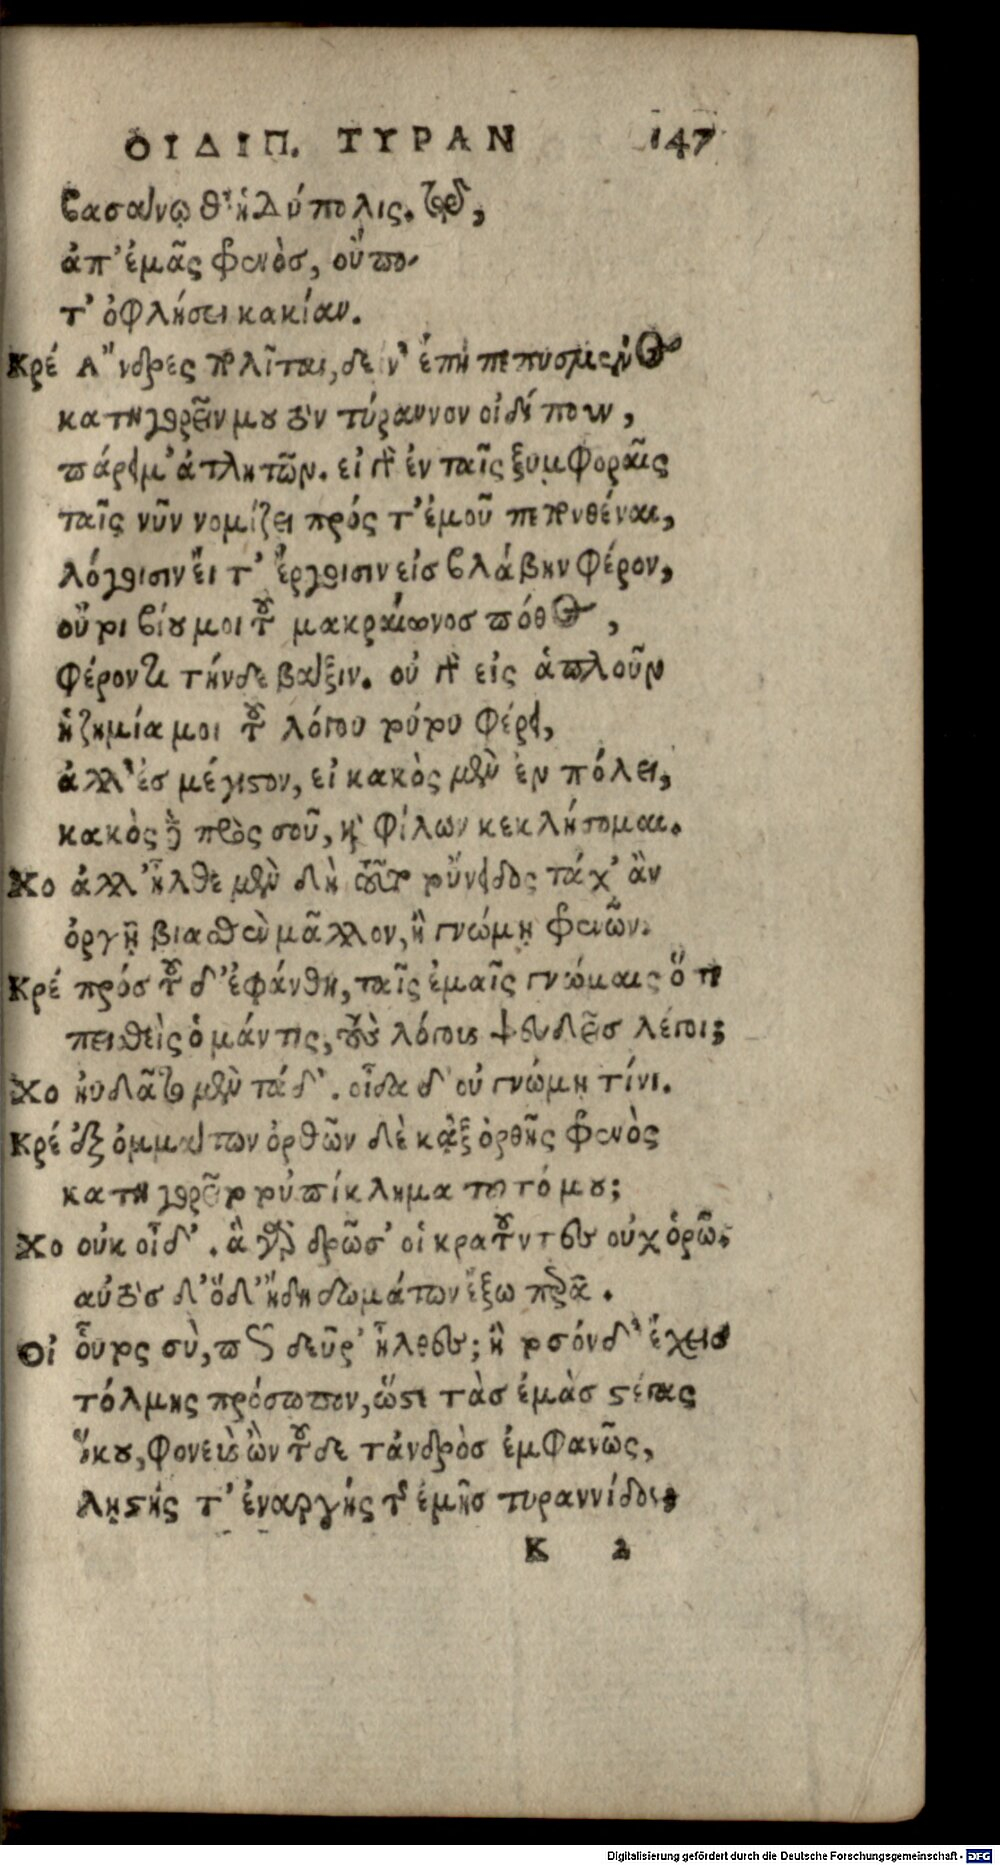 ΟΙΔΙΠ. ΤΥΡΑΝ 147
βασάνῳ θ' ἡδύπολις. τῷδ',
ἀπ' ἐμᾶς φρενὸς, οὔπο-
τ' ὀφλήσει κακίαν.
Κρέ Ἄνδρες πολῖται, δείν' ἔπη πεπυσμένος
κατηγορεῖν μου τὸν τύραννον οἰδίπουν,
πάρειμ' ἀτλητῶν. εἰ γὰρ ἐν ταῖς ξυμφοραῖς
ταῖς νῦν νομίζει πρός τ' ἐμοῦ πεπονθέναι,
λόγοισιν εἴ τ' ἔργοισιν εἰς βλάβην φέρον,
οὔτοι βίου μοι τοῦ μακραίωνος πόθος,
φέροντι τήνδε βάξιν. οὐ γὰρ εἰς ἁπλοῦν
ἡ ζημία μοι τοῦ λόγου τούτου φέρει,
ἀλλ' ἐς μέγιστον, εἰ κακὸς μὲν ἐν πόλει,
κακὸς δὲ πρὸς σοῦ, καὶ φίλων κεκλήσομαι.
Χο ἀλλ' ἦλθε μὲν δὴ τοῦτο τοὔνειδος τάχ' ἂν
ὀργῇ βιασθὲν μᾶλλον, ἢ γνώμῃ φρενῶν.
Κρέ πρός τοῦ δ' ἐφάνθη, ταῖς ἐμαῖς γνώμαις ὅτι
πεισθεὶς ὁ μάντις, τοὺς λόγους ψευδεῖς λέγοι;
Χο ηὐδᾶτο μὲν τάδ'. οἶδα δ' οὐ γνώμῃ τίνι.
Κρέ ἐξ ὀμμάτων ὀρθῶν δὲ κἀξ ὀρθῆς φρενὸς
κατηγορεῖτο τοὐπίκλημα τοῦτό μου;
Χο οὐκ οἶδ'. ἃ γὰρ δρῶσ' οἱ κρατοῦντες οὐχ ὁρῶ.
αὐτὸς δ' ὅδ' ἤδη δωμάτων ἔξω περᾷ.
Οἰ οὗτος σὺ, πῶς δεῦρ' ἦλθες; ἢ τοσόνδ' ἔχεις
τόλμης πρόσωπον, ὥστε τὰς ἐμὰς στέγας
ἵκου, φονεὺς ὢν τοῦδε τἀνδρὸς ἐμφανῶς,
λῃστής τ' ἐναργής τῆς ἐμῆς τυραννίδος;
Κ 2
Digitalisierung gefördert durch die Deutsche Forschungsgemeinschaft - DFG